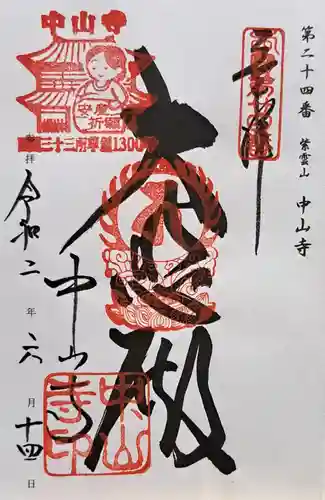 第二十四番 紫雲山 中山寺
奉拝
大悲殿
中山寺
令和二年六月十四日
中山寺
安産祈願
三十三所草創1300年
中山寺印